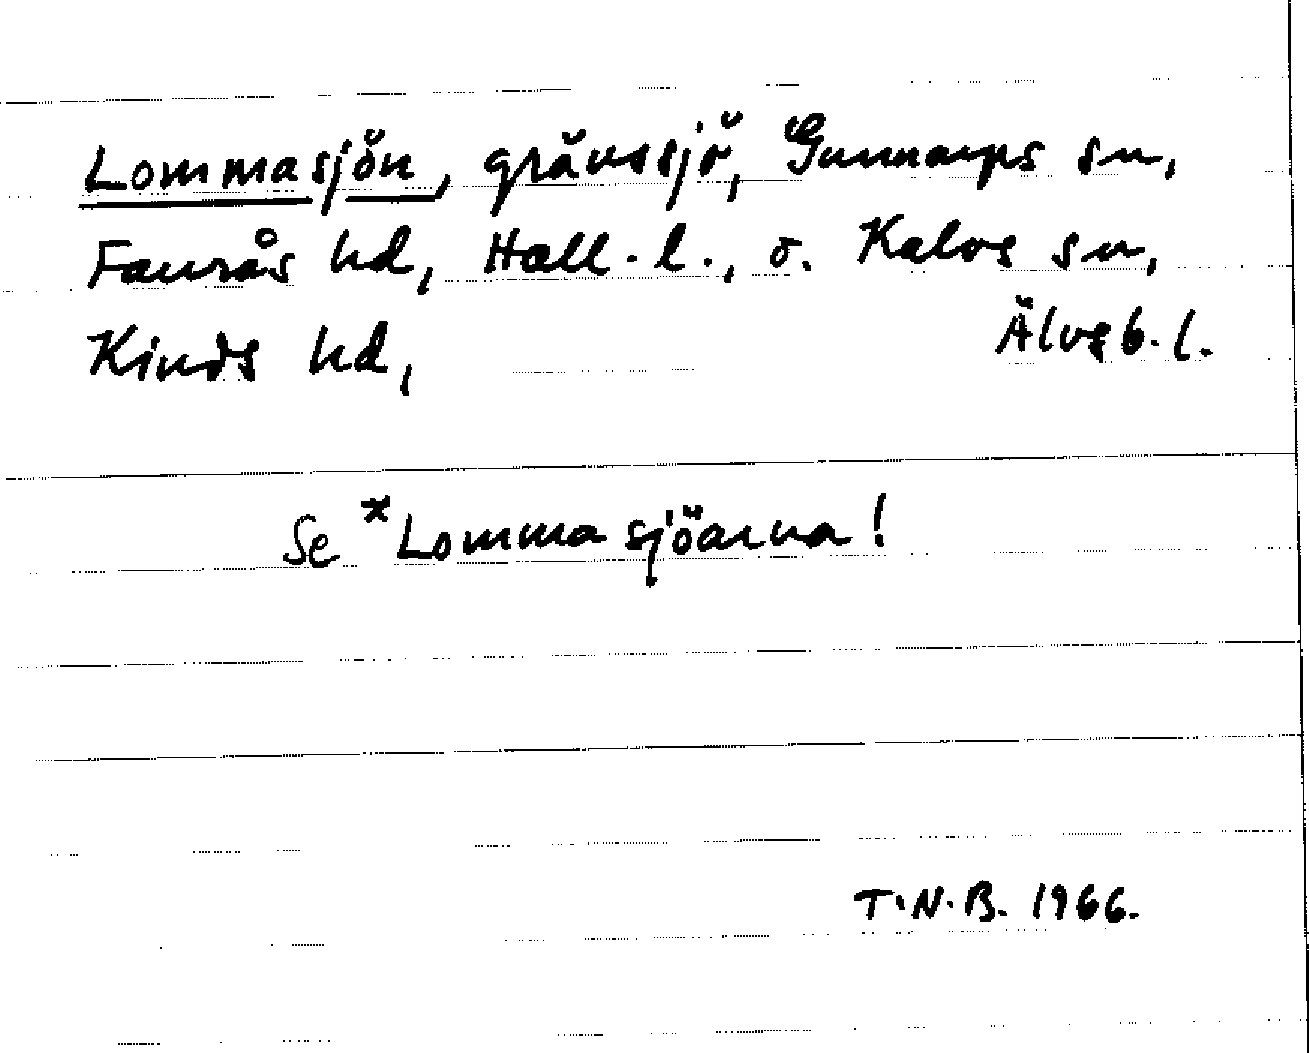 Lommasjön, gränssjö, Gunnarps sn,
Faurås hd, Hall. l., o. Kalvs sn,
Kinds hd, Älvsb. l.
Se *Lommasjöarna!
T.N.B. 1966.